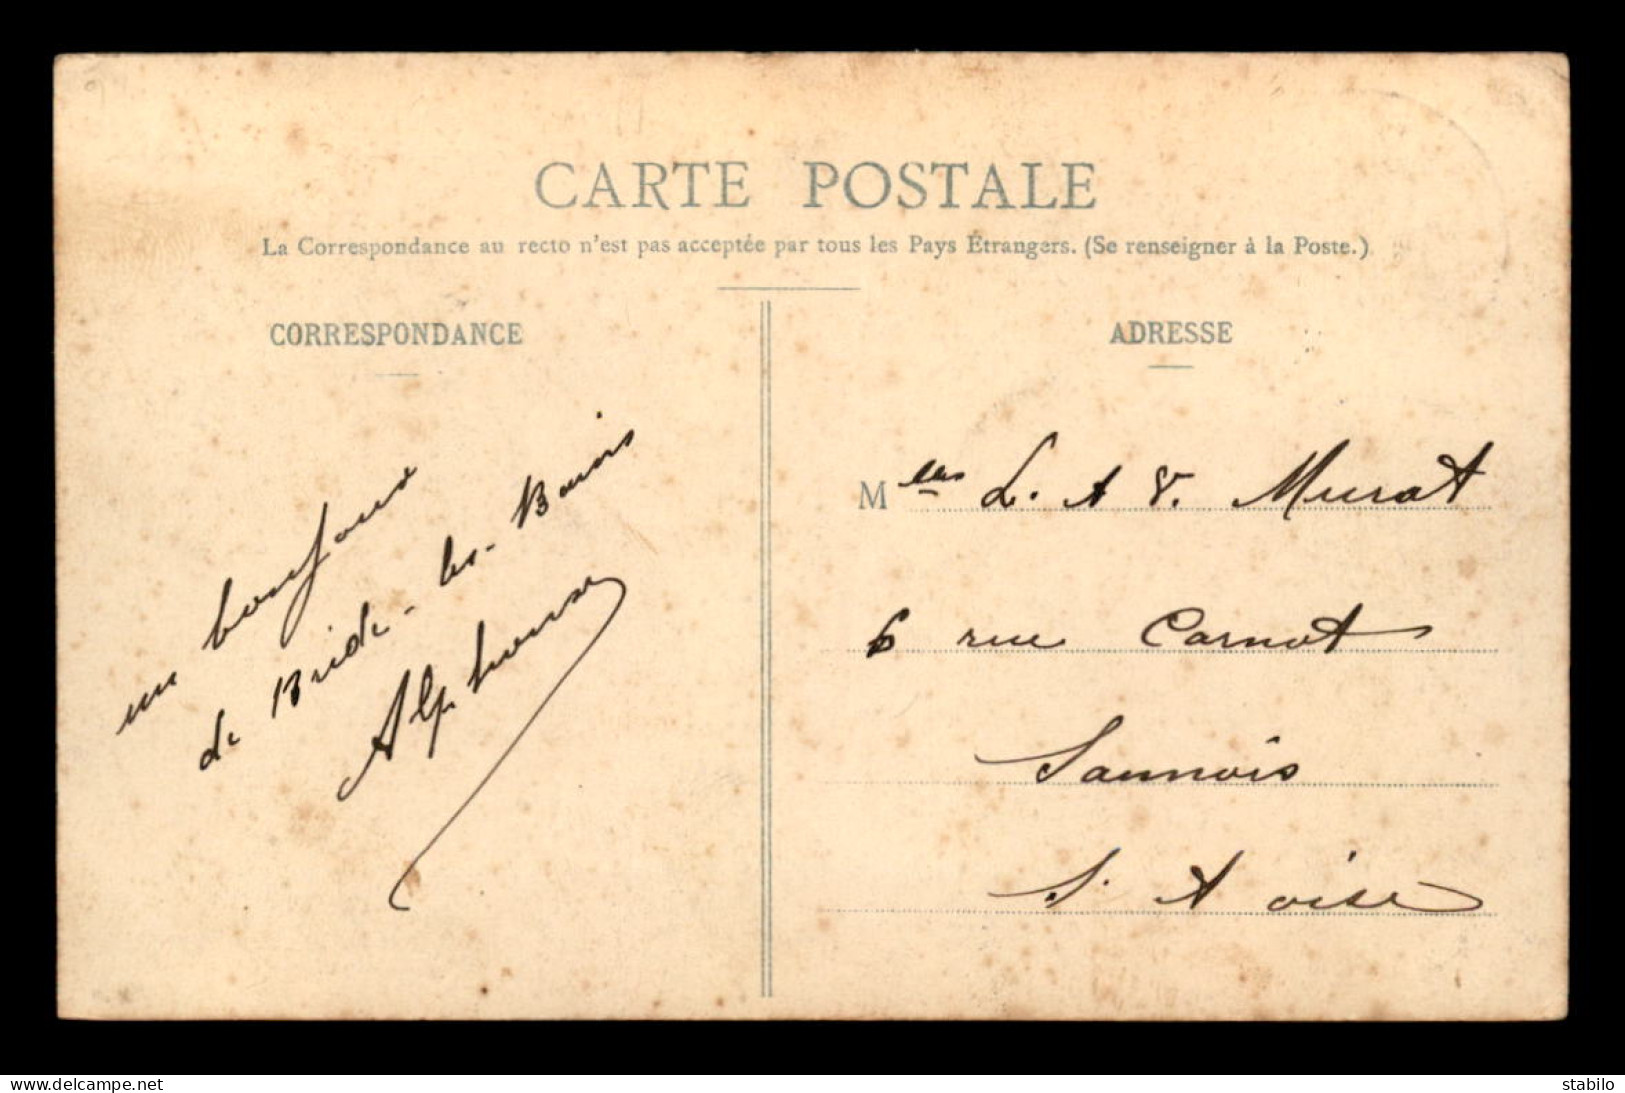 CARTE POSTALE
La Correspondance au recto n'est pas acceptée par tous les Pays Etrangers. (Se renseigner à la Poste.)
CORRESPONDANCE
un bonjour
de Bride-les-Bains
Alphonse
ADRESSE
Melles L. A V. Murat
6 rue Carnot
Sannois
S. A oise
www.delcampe.net
stabilo